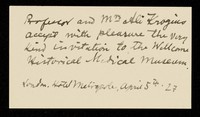 Professor and Mrs
accept with pleasure the very
kind invitation to the Wellcome
Historical Medical Museum.
London, Hotel Metropole, April 5th - 27